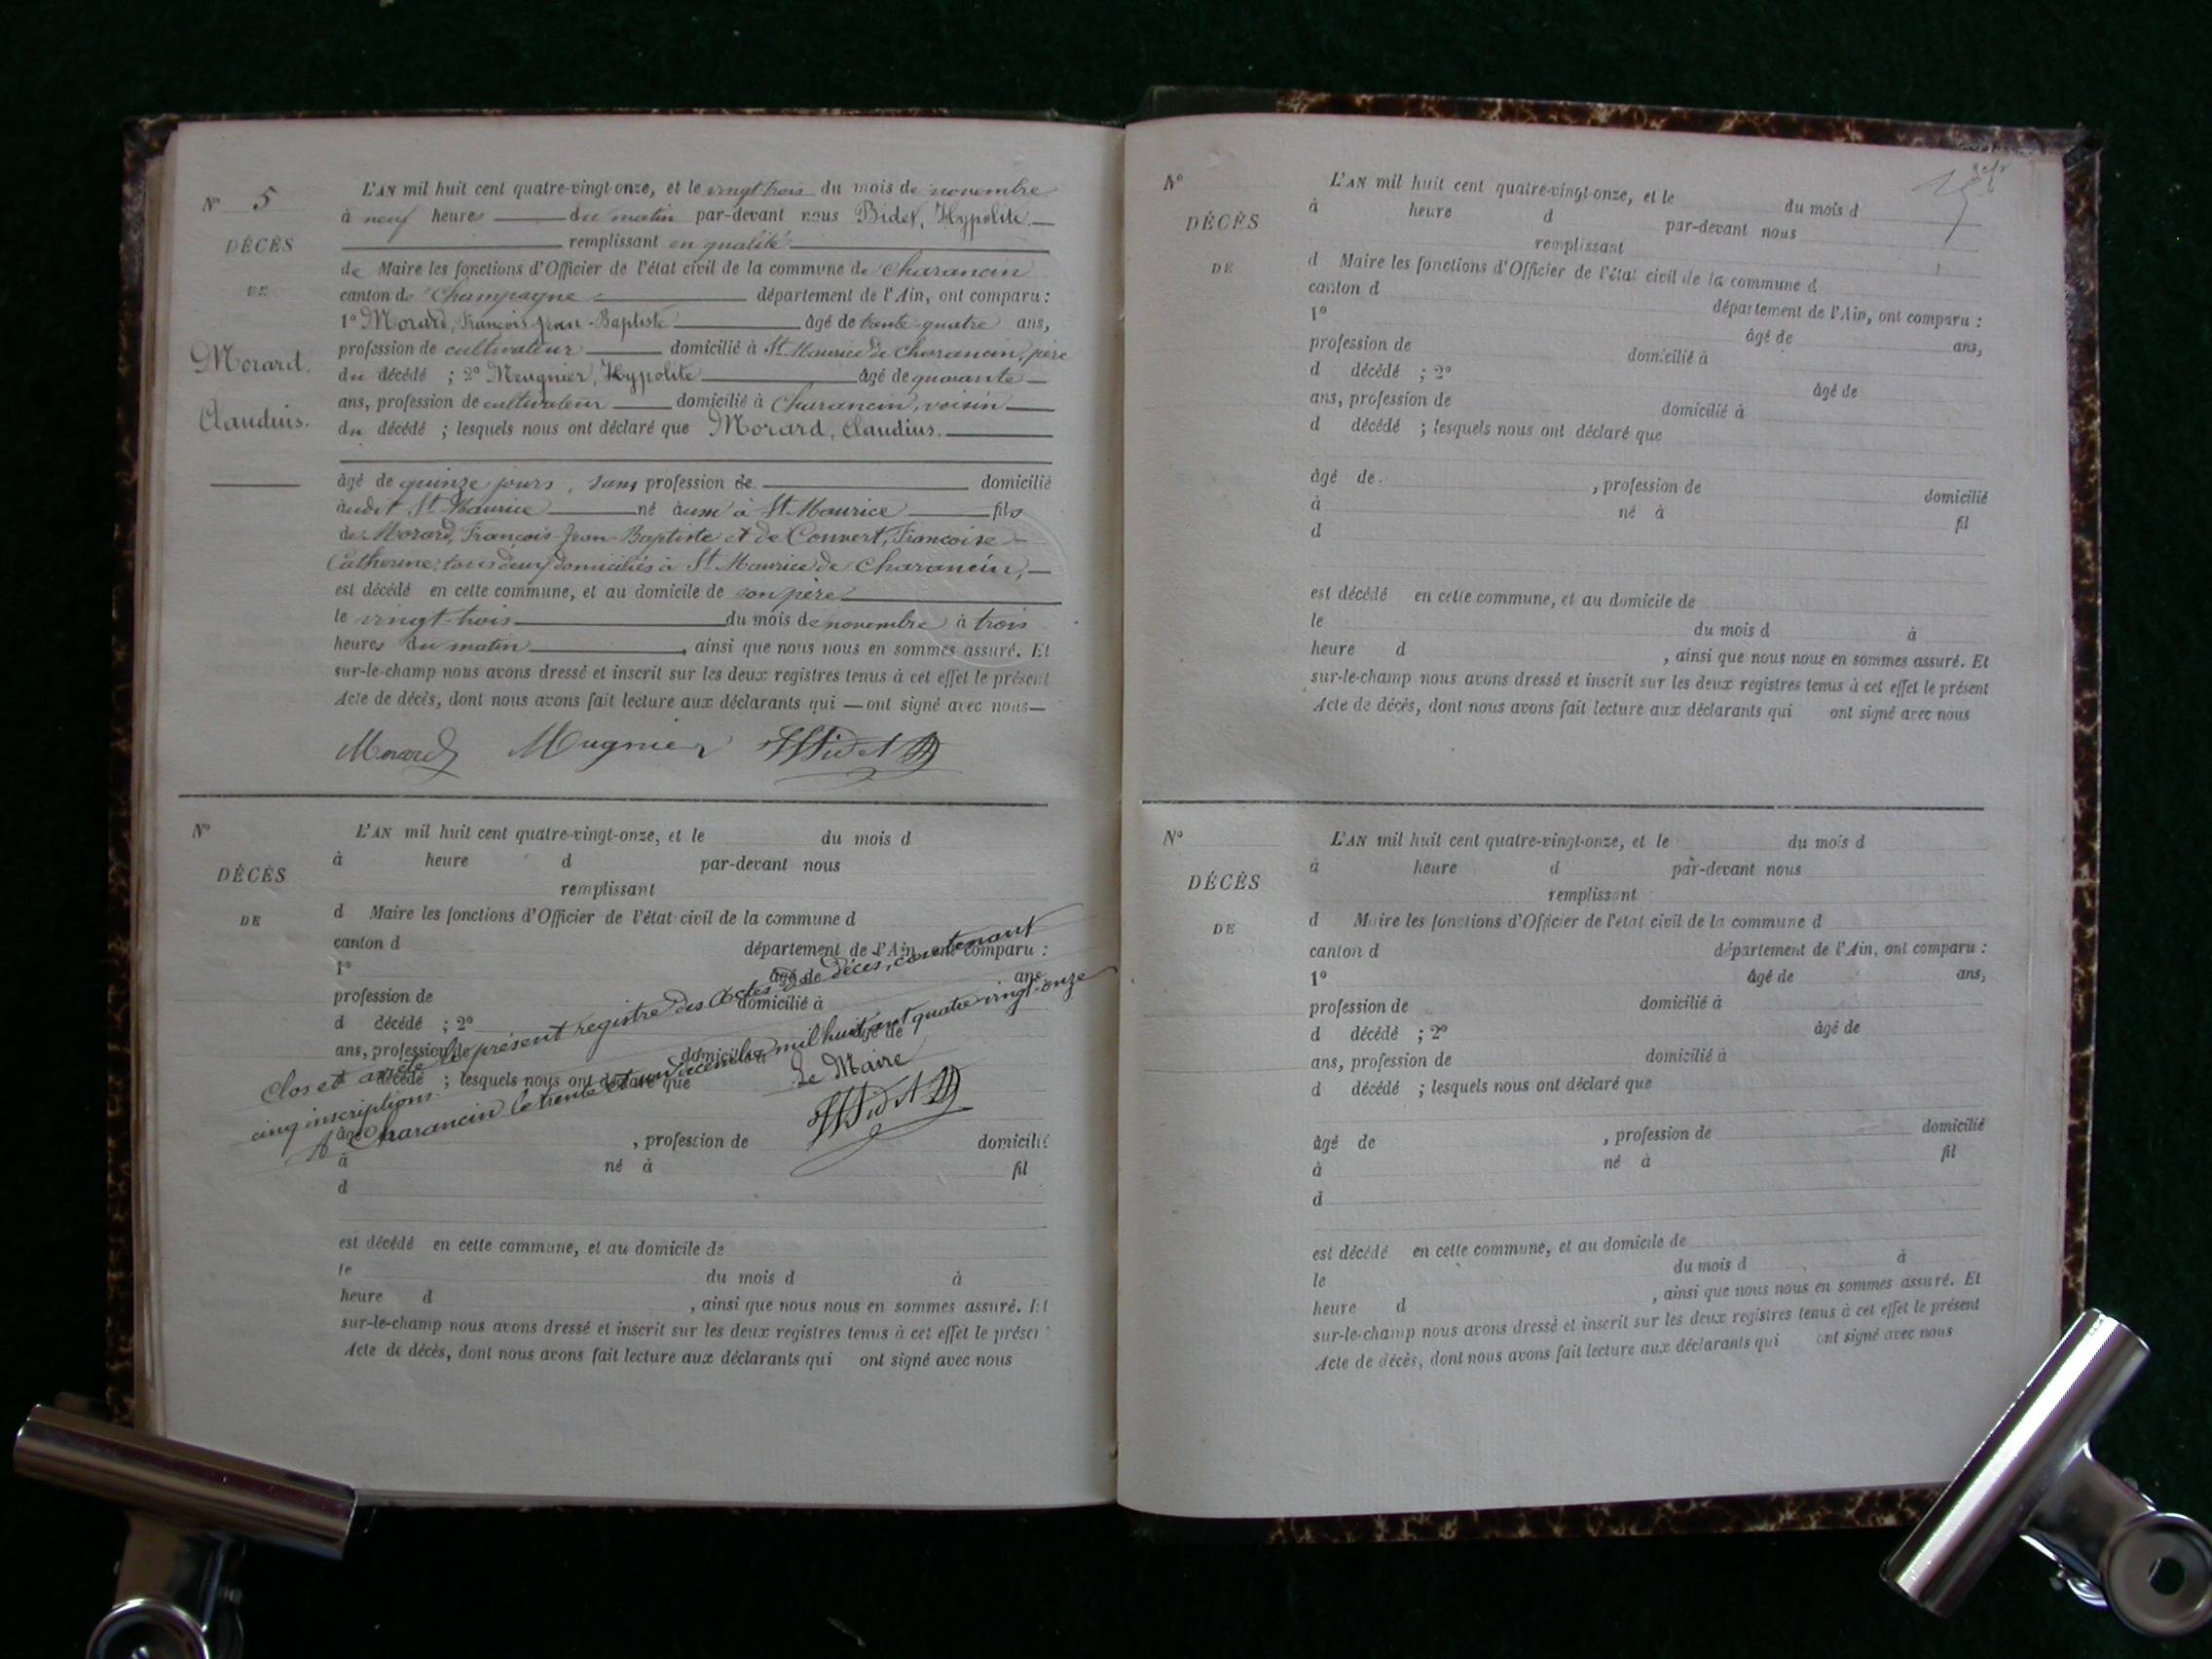 N° 5
DÉCÈS
DE
Morard,
Claudius.
L'AN mil huit cent quatre-vingt-onze, et le vingt trois du mois de novembre
à neuf heures du matin par-devant nous Bidet, Hypolite
remplissant en qualité
de Maire les fonctions d'Officier de l'état civil de la commune de Charancin
canton de Champagne département de l'Ain, ont comparu :
1° Morard, François-Jean-Baptiste âgé de trente-quatre ans,
profession de cultivateur domicilié à St Maurice de Charancin, père
du décédé ; 2° Meugnier, Hypolite âgé de quarante
ans, profession de cultivateur domicilié à Charancin, voisin
du décédé ; lesquels nous ont déclaré que Morard, Claudius.
âgé de quinze jours, sans profession de domicilié
audit St Maurice né aussi à St Maurice fils
de Morard, François-Jean-Baptiste et de Convert, Françoise-
Catherine, tous deux domiciliés à St Maurice de Charancin,
est décédé en cette commune, et au domicile de son père
le vingt-trois du mois de novembre à trois
heures du matin, ainsi que nous nous en sommes assuré. Et
sur-le-champ nous avons dressé et inscrit sur les deux registres tenus à cet effet le présent
Acte de décès, dont nous avons fait lecture aux déclarants qui — ont signé avec nous—
Morard Mugnier HBidet
N°
DÉCÈS
DE
L'AN mil huit cent quatre-vingt-onze, et le du mois d
à heure d par-devant nous
remplissant
d Maire les fonctions d'Officier de l'état civil de la commune d
canton d département de l'Ain, ont comparu :
1° âgé de ans,
profession de domicilié à
d décédé ; 2° âgé de
ans, profession de domicilié à
d décédé ; lesquels nous ont déclaré que
Clos et arrêté le présent registre des actes de décès, contenant
cinq inscriptions.
A Charancin le trente et un décembre mil huit cent quatre vingt-onze
Le Maire
HBidet
âgé de , profession de domicilié
à né à fil
d
est décédé en cette commune, et au domicile de
le du mois d à
heure d , ainsi que nous nous en sommes assuré. Et
sur-le-champ nous avons dressé et inscrit sur les deux registres tenus à cet effet le présen
Acte de décès, dont nous avons fait lecture aux déclarants qui ont signé avec nous
N°
DÉCÈS
DE
L'AN mil huit cent quatre-vingt-onze, et le du mois d
à heure d par-devant nous
remplissant
d Maire les fonctions d'Officier de l'état civil de la commune d
canton d département de l'Ain, ont comparu :
1° âgé de ans,
profession de domicilié à
d décédé ; 2° âgé de
ans, profession de domicilié à
d décédé ; lesquels nous ont déclaré que
âgé de , profession de domicilié
à né à fil
d
est décédé en cette commune, et au domicile de
le du mois d à
heure d , ainsi que nous nous en sommes assuré. Et
sur-le-champ nous avons dressé et inscrit sur les deux registres tenus à cet effet le présent
Acte de décès, dont nous avons fait lecture aux déclarants qui ont signé avec nous
N°
DÉCÈS
DE
L'AN mil huit cent quatre-vingt-onze, et le du mois d
à heure d par-devant nous
remplissant
d Maire les fonctions d'Officier de l'état civil de la commune d
canton d département de l'Ain, ont comparu :
1° âgé de ans,
profession de domicilié à
d décédé ; 2° âgé de
ans, profession de domicilié à
d décédé ; lesquels nous ont déclaré que
âgé de , profession de domicilié
à né à fil
d
est décédé en cette commune, et au domicile de
le du mois d à
heure d , ainsi que nous nous en sommes assuré. Et
sur-le-champ nous avons dressé et inscrit sur les deux registres tenus à cet effet le présent
Acte de décès, dont nous avons fait lecture aux déclarants qui ont signé avec nous